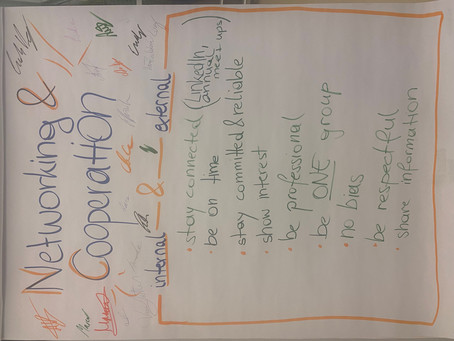 Networking &
Cooperation
internal & external
• stay connected (LinkedIn, annual meet ups)
• be on time
• stay committed & reliable
• show interest
• be professional
• be ONE group
• no bias
• be respectful
• share information